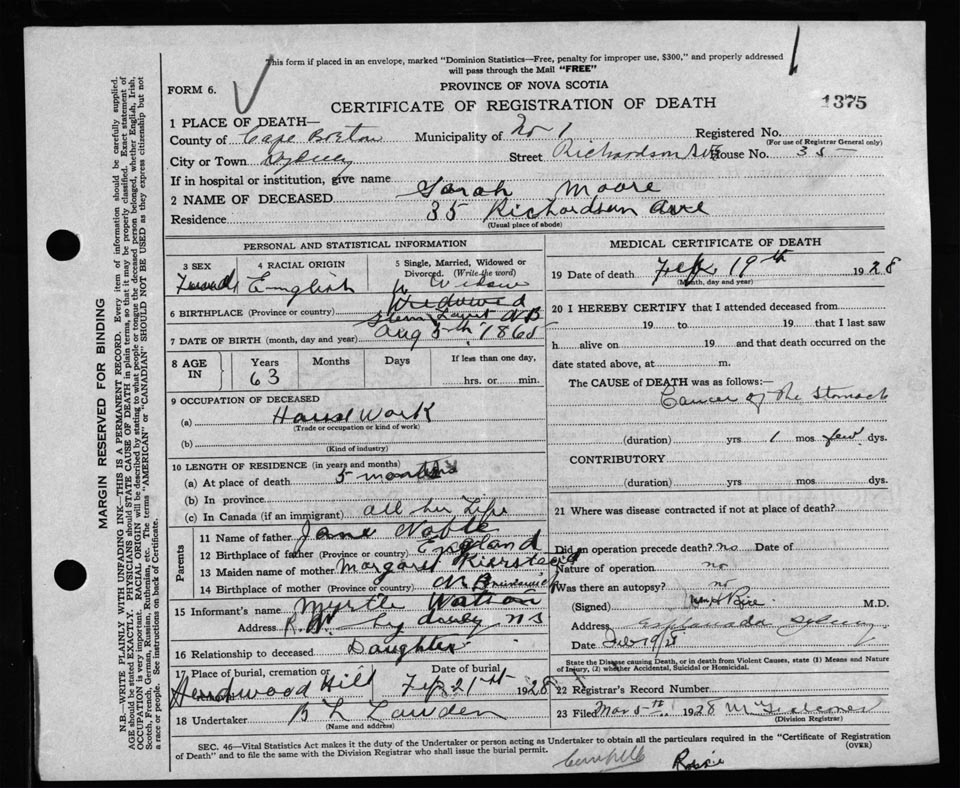 This form if placed in an envelope, marked "Dominion Statistics—Free, penalty for improper use, $300," and properly addressed
will pass through the Mail "FREE"
FORM 6.
PROVINCE OF NOVA SCOTIA
CERTIFICATE OF REGISTRATION OF DEATH
1375
1 PLACE OF DEATH—
County of Cape Breton Municipality of No 1 Registered No.
(For use of Registrar General only)
City or Town Sydney Street Richardson Ave House No. 35
If in hospital or institution, give name
2 NAME OF DECEASED Sarah Moore
Residence 35 Richardson Ave
(Usual place of abode)
PERSONAL AND STATISTICAL INFORMATION
3 SEX
4 RACIAL ORIGIN English
5 Single, Married, Widowed or Divorced. (Write the word) Widow
Widowed
6 BIRTHPLACE (Province or country) N B
7 DATE OF BIRTH (month, day and year) Aug 5th 1865
8 AGE IN Years 63 Months Days If less than one day, hrs. or min.
9 OCCUPATION OF DECEASED
(a) House Work
(Trade or occupation or kind of work)
(b)
(Kind of industry)
10 LENGTH OF RESIDENCE (in years and months)
(a) At place of death 5 months
(b) In province
(c) In Canada (if an immigrant) all her life
Parents
11 Name of father Noble
12 Birthplace of father (Province or country) England
13 Maiden name of mother Margaret Kierstead
14 Birthplace of mother (Province or country) N Brunswick
15 Informant's name Myrtle Watson
Address Sydney N S
16 Relationship to deceased Daughter
17 Place of burial, cremation or removal Hardwood Hill
Date of burial Feb 21st 1928
18 Undertaker B L
(Name and address)
MEDICAL CERTIFICATE OF DEATH
19 Date of death Feb 19th 1928
(Month, day and year)
20 I HEREBY CERTIFY that I attended deceased from
19 to 19 that I last saw
h alive on 19 and that death occurred on the
date stated above, at m.
The CAUSE of DEATH was as follows:—
Cancer of the Stomach
(duration) yrs 1 mos few dys.
CONTRIBUTORY
(duration) yrs mos dys.
21 Where was disease contracted if not at place of death?
Did an operation precede death? no Date of
Nature of operation no
Was there an autopsy? no
(Signed) M.D.
Address Esplanade Sydney
Date Feb 19/28
State the Disease causing Death, or in death from Violent Causes, state (1) Means and Nature of Injury, (2) whether Accidental, Suicidal or Homicidal.
22 Registrar's Record Number
23 Filed Mar 5th 1928
(Division Registrar)
SEC. 46—Vital Statistics Act makes it the duty of the Undertaker or person acting as Undertaker to obtain all the particulars required in the "Certificate of Registration
of Death" and to file the same with the Division Registrar who shall issue the burial permit. (OVER)
Campbell
MARGIN RESERVED FOR BINDING
N.B.—WRITE PLAINLY WITH UNFADING INK—THIS IS A PERMANENT RECORD. Every item of information should be carefully supplied.
AGE should be stated EXACTLY. PHYSICIANS should STATE CAUSE OF DEATH in plain terms, so that it may be properly classified. Exact statement of
OCCUPATION is very important. RACIAL ORIGIN will be described by stating to what people or tongue the deceased person belonged, whether English, Irish,
Scotch, French, German, Russian, Ruthenian, etc. The terms "AMERICAN" or "CANADIAN" SHOULD NOT BE USED as they express citizenship but not
a race or people. See instructions on back of Certificate.